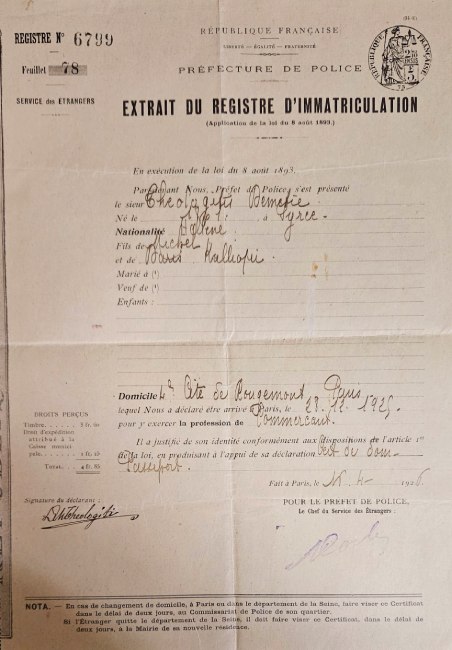 (M-6)
REGISTRE N° 6799
Feuillet 78
SERVICE DES ÉTRANGERS
RÉPUBLIQUE FRANÇAISE
LIBERTÉ — ÉGALITÉ — FRATERNITÉ
PRÉFECTURE DE POLICE
RÉPUBLIQUE FRANÇAISE
EXTRAIT DU REGISTRE D'IMMATRICULATION
(Application de la loi du 8 août 1893.)
En exécution de la loi du 8 août 1893.
Par devant Nous, Préfet de Police s'est présenté
le sieur Theologitis
Né le à Syrce
Nationalité
Fils de Michel
et de Kalliopi
Marié à (1)
Veuf de (1)
Enfants :
Domicile 4 Cité de Rougemont Paris
lequel Nous a déclaré être arrivé à Paris, le 28.12.1925
pour y exercer la profession de Commerçant
Il a justifié de son identité conformément aux dispositions de l'article 1er
de la loi, en produisant à l'appui de sa déclaration
Passeport
Fait à Paris, le 1926
POUR LE PRÉFET DE POLICE,
Le Chef du Service des Étrangers :
DROITS PERÇUS
Timbre
Droit d'expédition
attribué à la
Caisse municipale
Total
Signature du déclarant :
NOTA. — En cas de changement de domicile, à Paris ou dans le département de la Seine, faire viser ce Certificat
dans le délai de deux jours, au Commissariat de Police de son quartier.
Si l'Étranger quitte le département de la Seine, il doit faire viser ce Certificat, dans le délai de
deux jours, à la Mairie de sa nouvelle résidence.